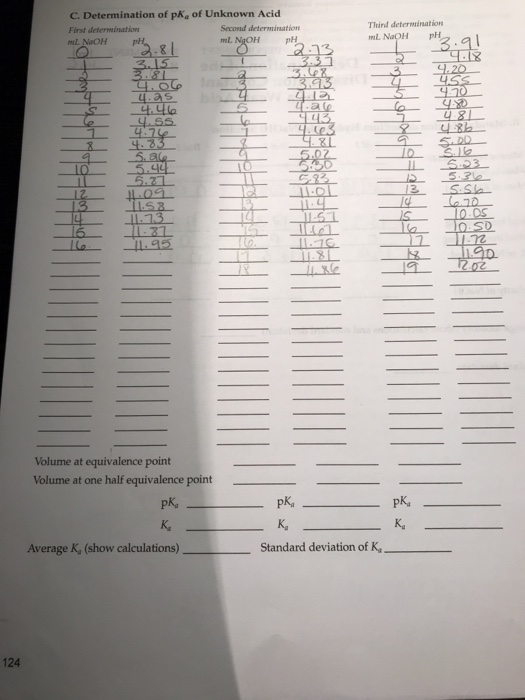 C. Determination of pKa of Unknown Acid
First determination Second determination Third determination
mL NaOH pH mL NaOH pH mL NaOH pH
0 2.81 0 2.73 1 3.91
1 3.15 1 3.37 2 4.18
2 3.81 2 3.68 3 4.20
3 4.06 3 3.93 4 4.55
4 4.25 4 4.12 5 4.70
5 4.46 5 4.26 6 4.80
6 4.55 6 4.43 7 4.81
7 4.76 7 4.63 8 4.86
8 4.83 8 4.81 9 5.00
9 5.26 9 5.02 10 5.16
10 5.44 10 5.30 11 5.23
11 5.87 11 5.83 12 5.36
12 11.09 12 11.01 13 5.56
13 11.53 13 11.4 14 6.70
14 11.73 14 11.57 15 10.05
15 11.87 15 11.67 16 10.50
16 11.95 16 11.76 17 11.72
17 11.81 18 11.90
18 11.86 19 12.02
Volume at equivalence point
Volume at one half equivalence point
pKa pKa pKa
Ka Ka Ka
Average Ka (show calculations) Standard deviation of Ka
124